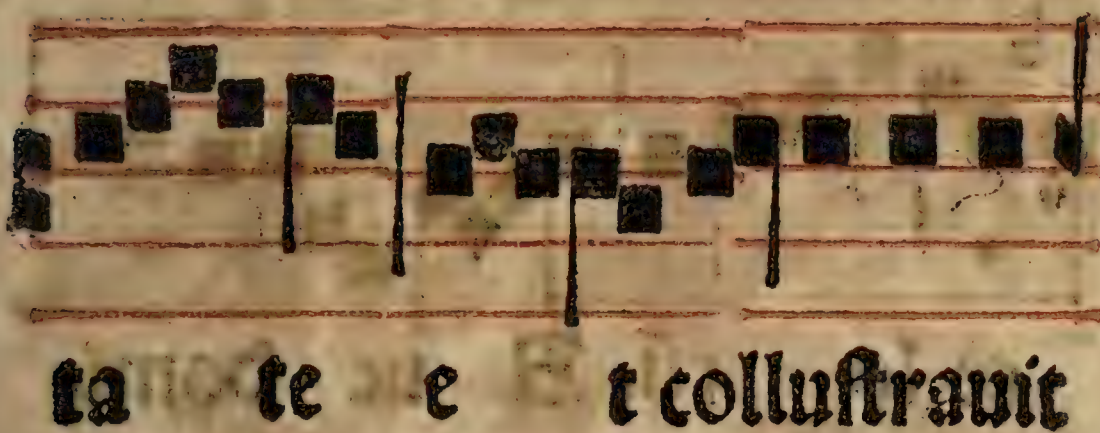 ta te e t collustrauit